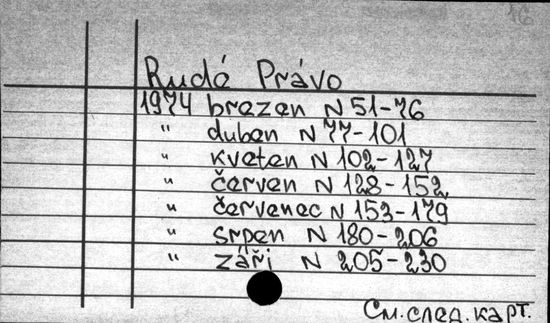 16
Rudé Právo
1974 brezen N 51-76
" duben N 77-101
" kveten N 102-127
" červen N 128-152
" červenec N 153-179
" srpen N 180-206
" září N 205-230
См. след. карт.